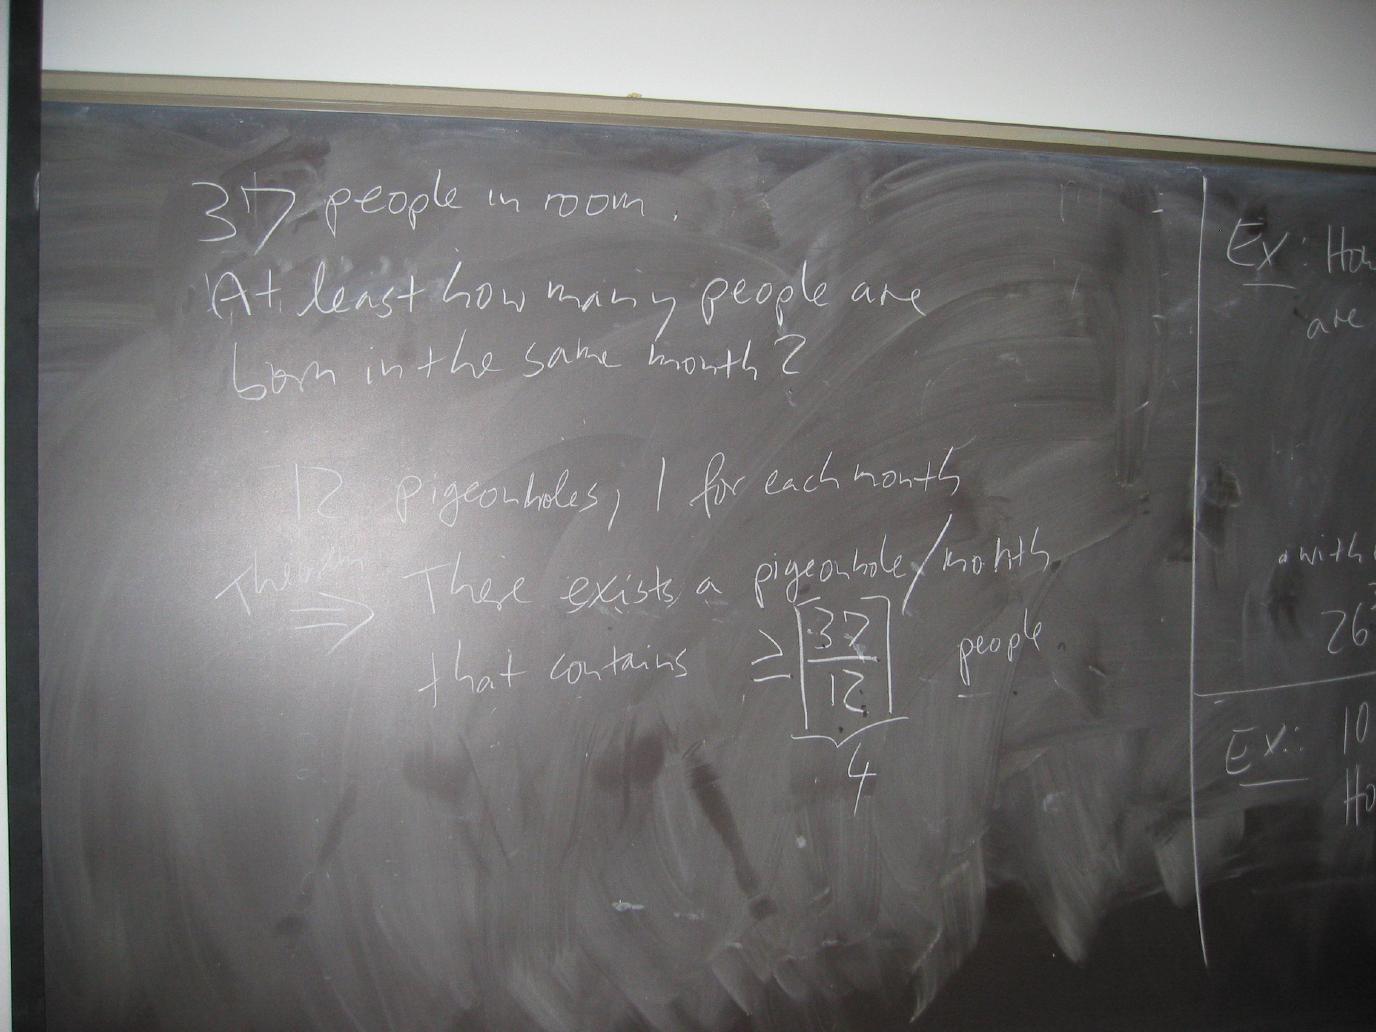 37 people in room.
At least how many people are
born in the same month?
12 pigeonholes, 1 for each month
Theorem ⇒ There exists a pigeonhole/month
that contains ≥ ⌈37/12⌉ people
4
Ex: How
are
with
26³
Ex: 10
Ho